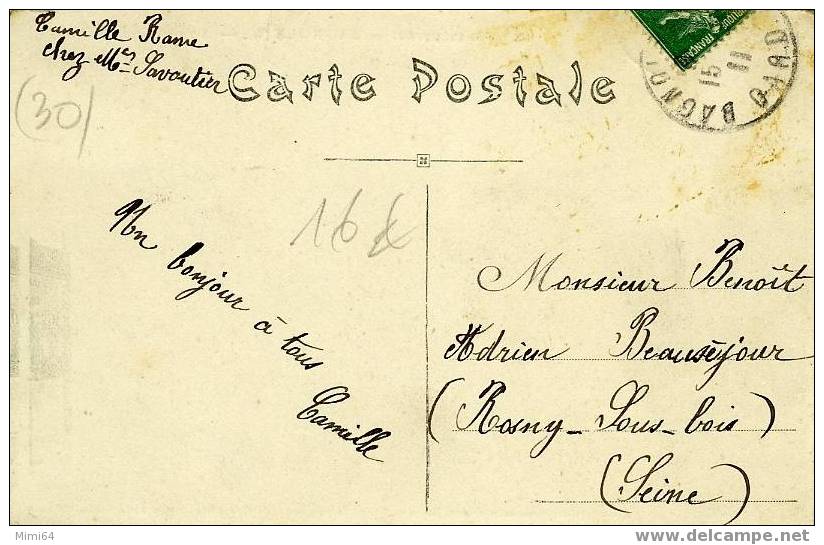 Camille Rame
chez Mme Savoutier
Carte Postale
(30)
16€
Un bonjour à tous
Camille
Monsieur Benoît
Adrien Beauséjour
(Rosny-Sous-bois)
(Seine)
BAGNO
15
11
FRANÇAIS
Mimi64
www.delcampe.net